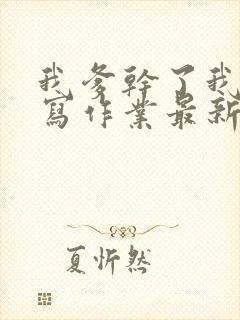 我爹幹了我
寫作業最新
夏忻然